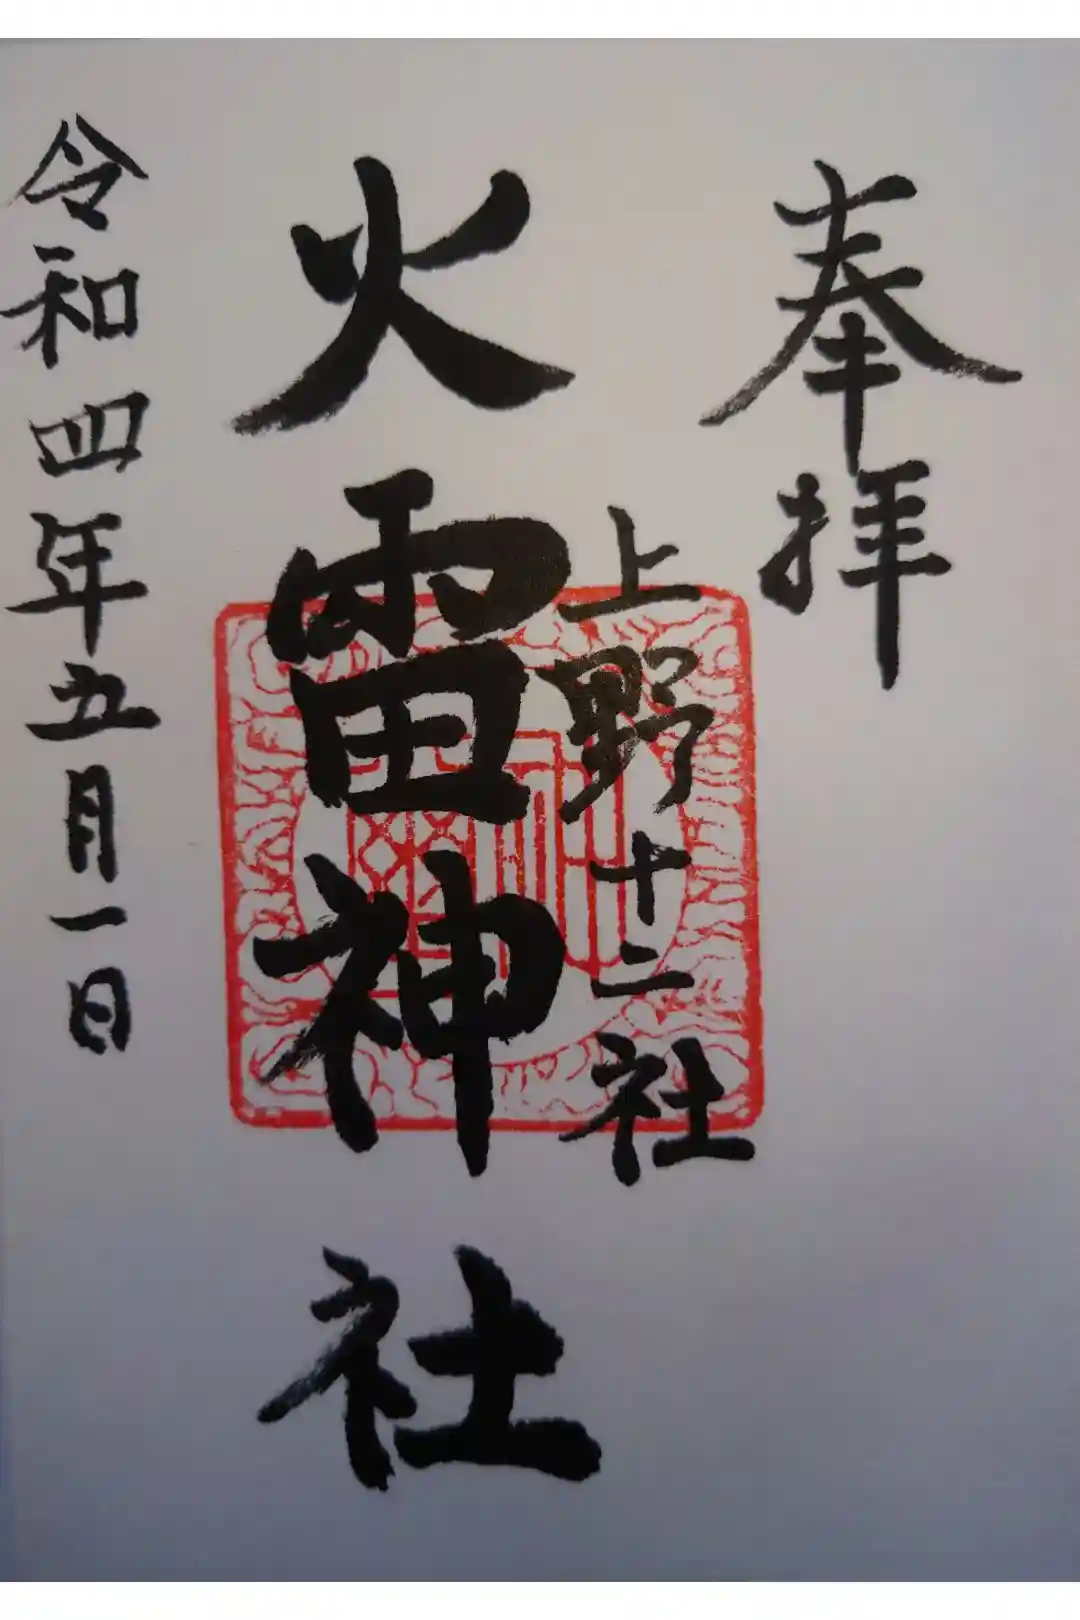 奉拝
上野十二社
火雷神社
令和四年五月一日